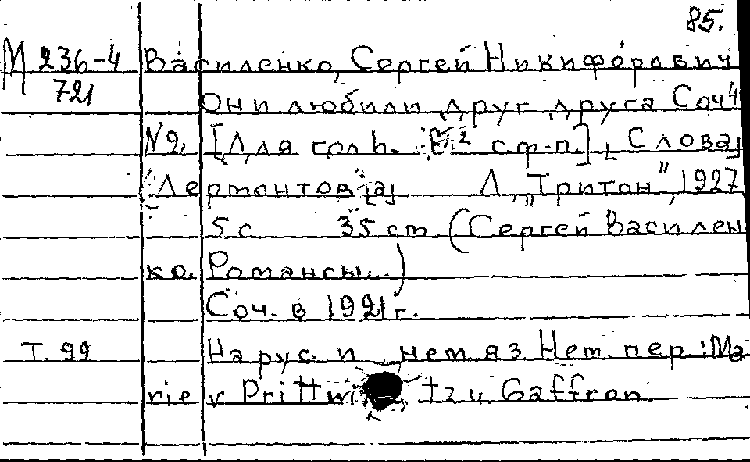 85.
М 236-4 Василенко, Сергей Никифорович
721
Они любили друг друга Соч 4
№2. [Для гол h. с ф-п.], Слова
Лермонтов [а] Л, „Тритон", 1927
5 с 35 cm. (Сергей Василен
ко. Романсы..)
Соч. в 1921 г.
Т. 99 На рус. и нем яз Нем. пер: Ma
rie v Prittwi tz u Gaffron.